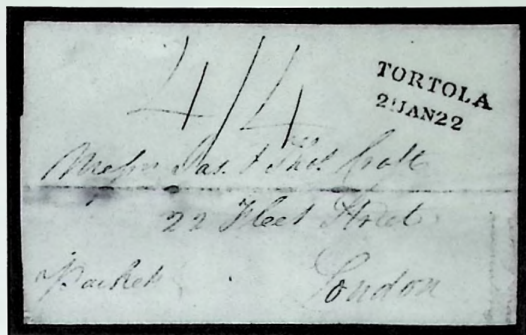 4/4
TORTOLA
2 JAN 22
Messrs Jas. & Thos.
22 Fleet Street
London
Packet